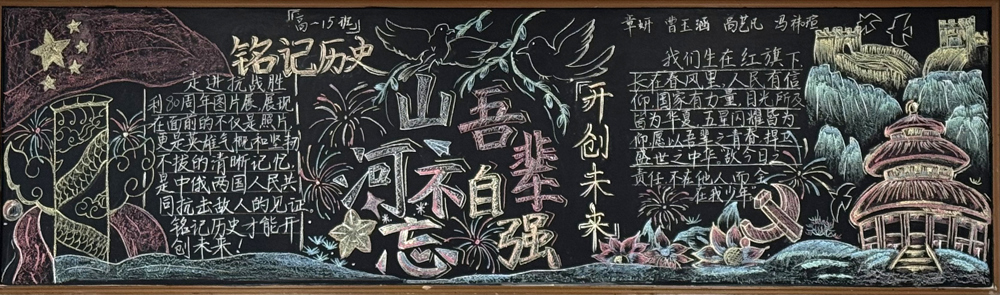 「高一15班」
章妍 曹玉涵 尚艺凡 冯祎瑄
铭记历史
走进抗战胜
利80周年图片展,展现
在面前的不仅是照片,
更是英雄气概和坚韧
不拔的清晰记忆,
是中俄两国人民共
同抗击敌人的见证.
铭记历史才能开
创未来!
山河不忘
吾辈自强
「开创未来」
我们生在红旗下,
长在春风里,人民有信
仰,国家有力量,目光所及
皆为华夏,五星闪耀皆为
信仰,愿以吾辈之青春 捍卫
盛世之中华,故今日之
责任,不在他人,而全
在我少年